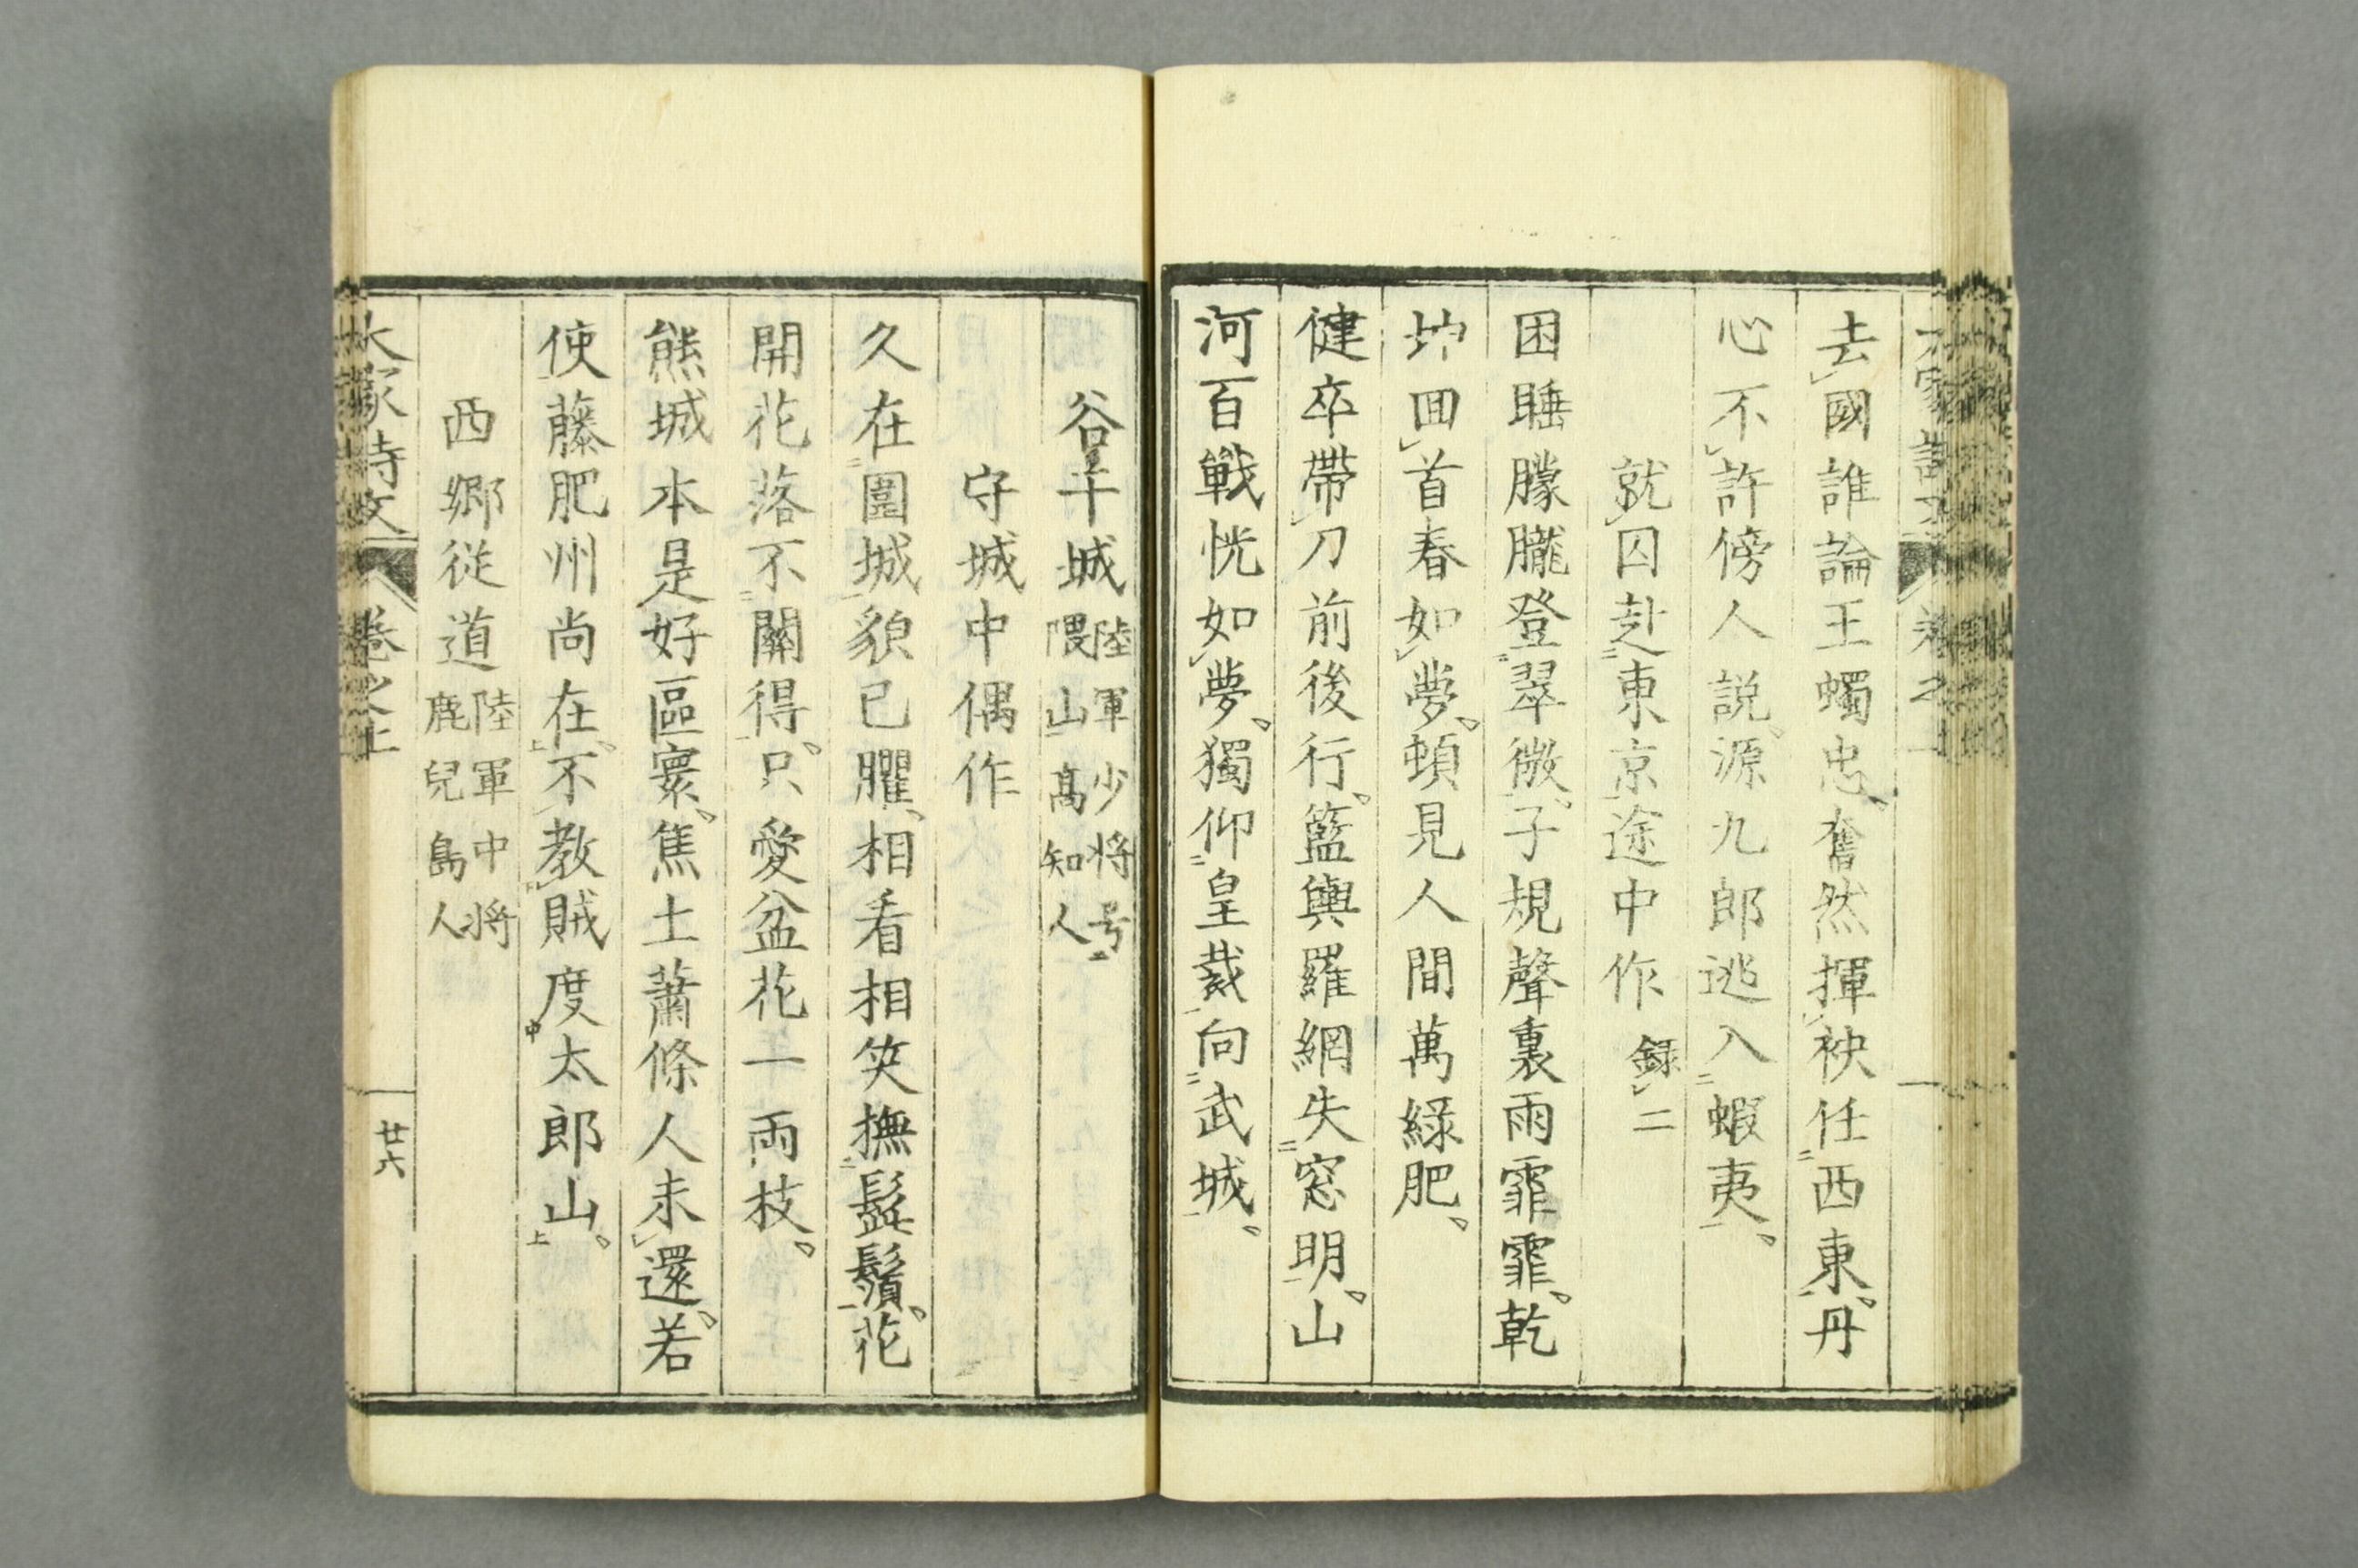 去國誰論王蠋忠、奮然揮袂任西東、丹
心不許傍人説、源九郎逃入蝦夷、
就囚赴東京途中作 録二
困睡朦朧登翠微、子規聲裏雨霏霏、乾
坤回首春如夢、頓見人間萬緑肥、
健卒帶刀前後行、籃輿羅網失窓明、山
河百戦恍如夢、獨仰皇裁向武城、
谷干城 陸軍少将号隈山高知人
守城中偶作
久在圍城貌已臞、相看相笑撫髭鬚、花
開花落不關得、只愛盆花一兩枝、
熊城本是好區寰、焦土蕭條人未還、若
使藤肥州尚在、不教賊度太郎山、
西郷従道 陸軍中将鹿兒島人
大家詩文 卷之上 廿六